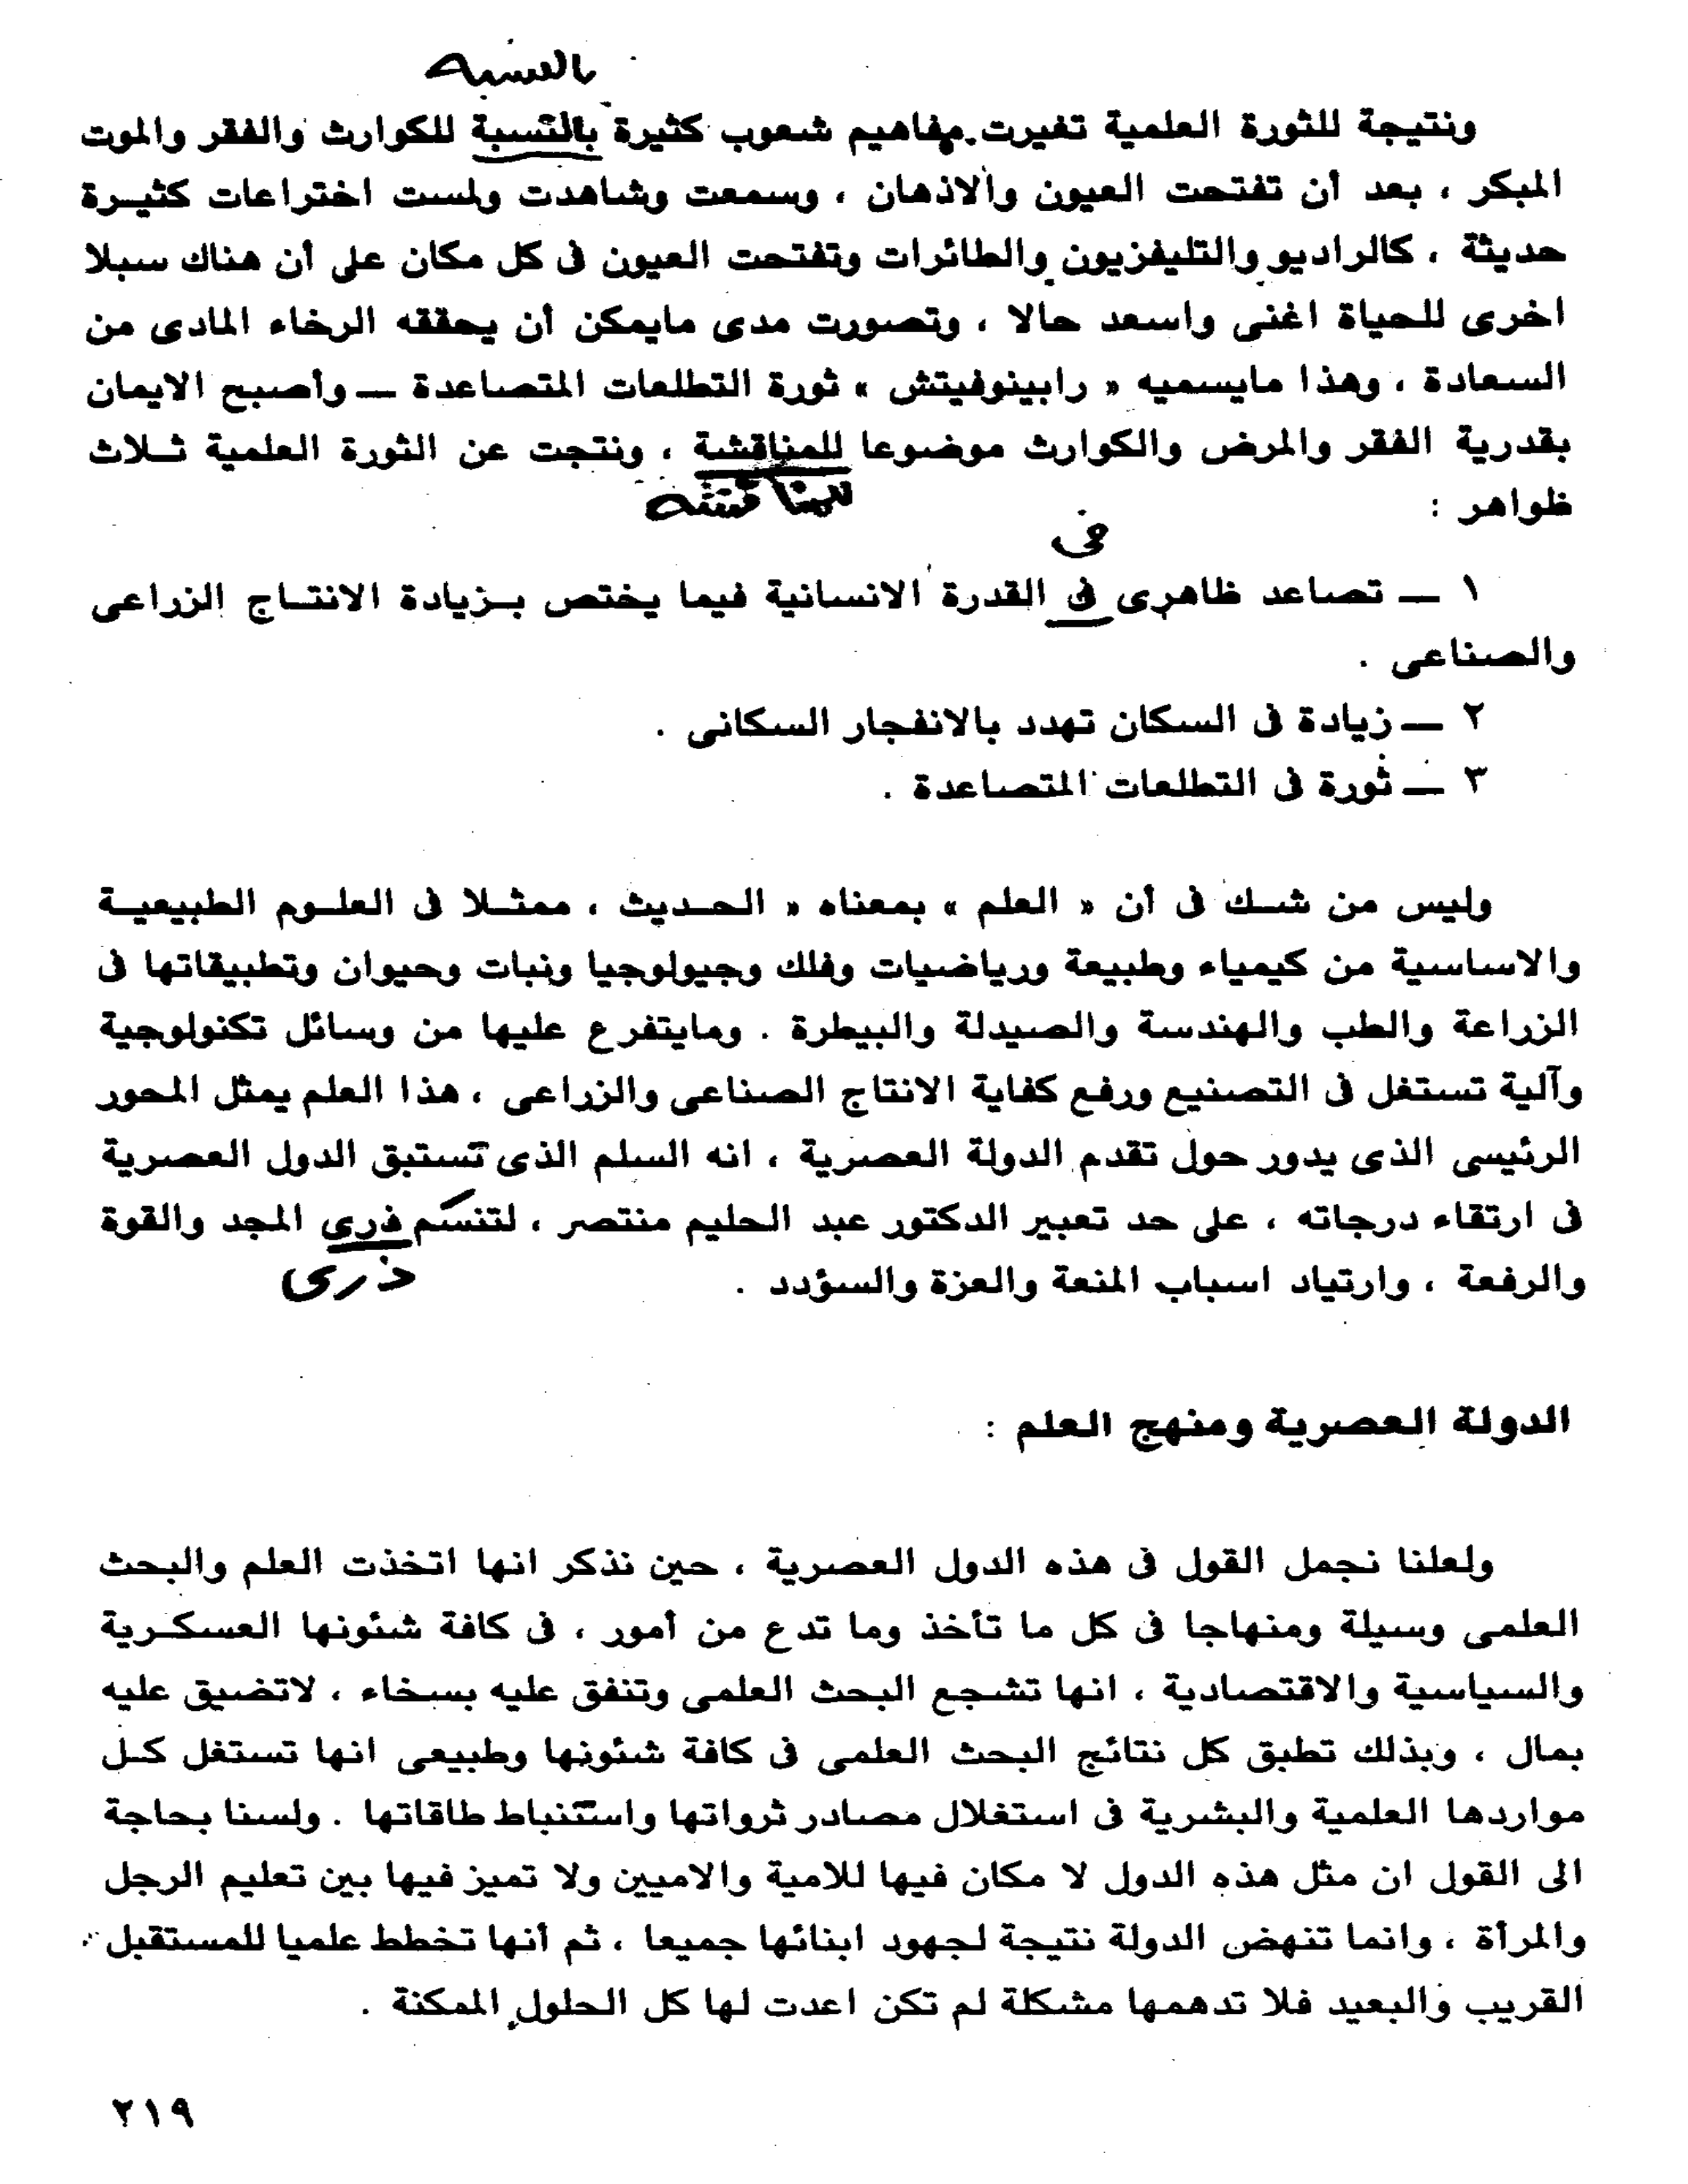 بالنسبه
ونتيجة للثورة العلمية تغيرت مفاهيم شعوب كثيرة بالنسبة للكوارث والفقر والموت
المبكر ، بعد أن تفتحت العيون والاذهان ، وسمعت وشاهدت ولمست اختراعات كثيـرة
حديثة ، كالراديو والتليفزيون والطائرات وتفتحت العيون فى كل مكان على أن هناك سبلا
اخرى للحياة اغنى واسعد حالا ، وتصورت مدى مايمكن أن يحققه الرخاء المادى من
السعادة ، وهذا مايسميه « رابينوفيتش » ثورة التطلعات المتصاعدة — وأصبح الايمان
بقدرية الفقر والمرض والكوارث موضوعا للمناقشة ، ونتجت عن الثورة العلمية ثـلاث
للمناقشه
ظواهر :
فى
١ — تصاعد ظاهرى فى القدرة الانسانية فيما يختص بـزيادة الانتـاج الزراعى
والصناعى .
٢ — زيادة فى السكان تهدد بالانفجار السكانى .
٣ — ثورة فى التطلعات المتصاعدة .
وليس من شـك فى أن « العلم » بمعناه « الحـديث ، ممثـلا فى العلـوم الطبيعيـة
والاساسية من كيمياء وطبيعة ورياضيات وفلك وجيولوجيا ونبات وحيوان وتطبيقاتها فى
الزراعة والطب والهندسة والصيدلة والبيطرة . ومايتفرع عليها من وسائل تكنولوجية
وآلية تستغل فى التصنيع ورفع كفاية الانتاج الصناعى والزراعى ، هذا العلم يمثل المحور
الرئيسى الذى يدور حول تقدم الدولة العصرية ، انه السلم الذى تستبق الدول العصرية
فى ارتقاء درجاته ، على حد تعبير الدكتور عبد الحليم منتصر ، لتنسم ذرى المجد والقوة
والرفعة ، وارتياد اسباب المنعة والعزة والسؤدد .
ذرى
الدولة العصرية ومنهج العلم :
ولعلنا نجمل القول فى هذه الدول العصرية ، حين نذكر انها اتخذت العلم والبحث
العلمى وسيلة ومنهاجا فى كل ما تأخذ وما تدع من أمور ، فى كافة شئونها العسكـرية
والسياسية والاقتصادية ، انها تشجع البحث العلمى وتنفق عليه بسخاء ، لاتضيق عليه
بمال ، وبذلك تطبق كل نتائج البحث العلمى فى كافة شئونها وطبيعى انها تستغل كـل
مواردها العلمية والبشرية فى استغلال مصادر ثرواتها واستنباط طاقاتها . ولسنا بحاجة
الى القول ان مثل هذه الدول لا مكان فيها للامية والاميين ولا تميز فيها بين تعليم الرجل
والمرأة ، وانما تنهض الدولة نتيجة لجهود ابنائها جميعا ، ثم أنها تخطط علميا للمستقبل
القريب والبعيد فلا تدهمها مشكلة لم تكن اعدت لها كل الحلول الممكنة .
٢١٩